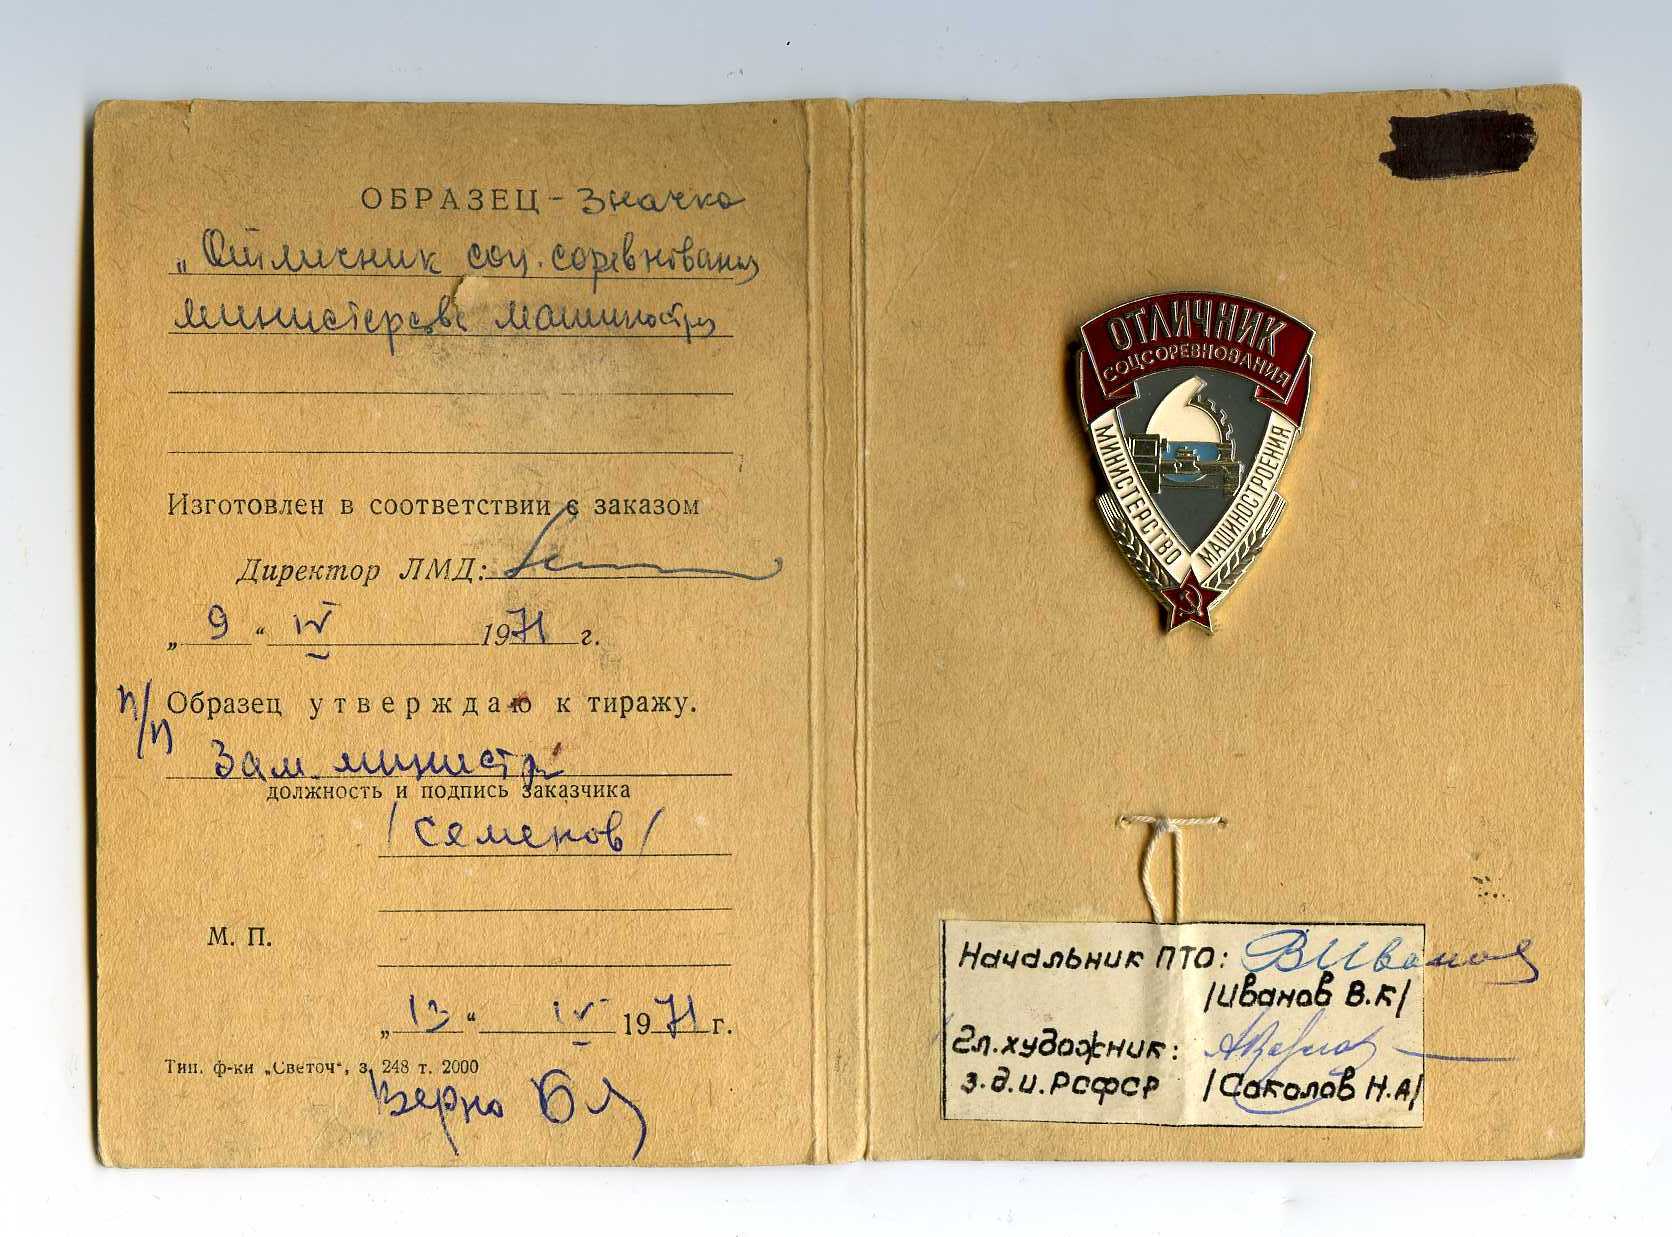 ОБРАЗЕЦ - значка
„Отличник соц. соревнования
министерства машиностр
Изготовлен в соответствии с заказом
Директор ЛМД:
„ 9 “ IV 1971 г.
п/п Образец утверждаю к тиражу.
Зам. министра
должность и подпись заказчика
/Семенов/
М. П.
„ 13 “ IV 1971 г.
Тип. ф-ки „Светоч“, з. 248 т. 2000
Верно
ОТЛИЧНИК
СОЦСОРЕВНОВАНИЯ
МИНИСТЕРСТВО
МАШИНОСТРОЕНИЯ
Начальник ПТО: ВИванов
/Иванов В.К/
Гл. художник:
з.д.и. РСФСР /Соколов Н.А/